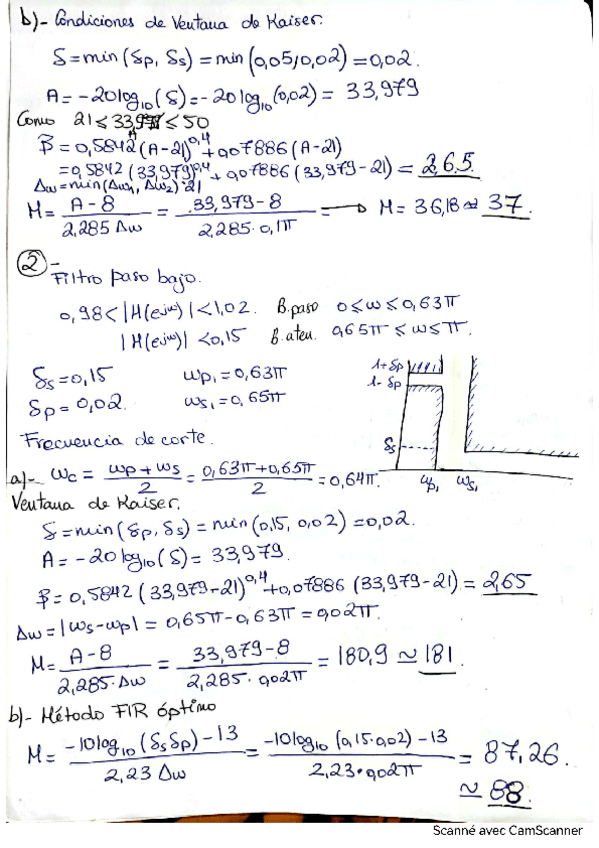 b)- Condiciones de Ventana de Kaiser.
S = min(Sp, Ss) = min(0,05, 0,02) = 0,02.
A = -20log10(S) = -20log10(0,02) = 33,979
Como 21 ≤ 33,979 ≤ 50
β = 0,5842 (A-21)^0,4 + 0,07886 (A-21)
= 0,5842 (33,979)^0,4 + 0,07886 (33,979-21) = 2,65.
Δw = min(Δw1, Δw2)
M = (A-8)/(2,285 Δw) = (33,979-8)/(2,285·0,1π) = → M = 36,18 ≃ 37.
② -
Filtro paso bajo.
0,98 < |H(e^jw)| < 1,02. B.paso 0 ≤ w ≤ 0,63π
|H(e^jw)| < 0,15 B.aten. 0,65π ≤ w ≤ π.
Ss = 0,15 wp1 = 0,63π
Sp = 0,02. ws1 = 0,65π
1+Sp
1-Sp
Ss
wp1 ws1
Frecuencia de corte.
a)- wc = (wp + ws)/2 = (0,63π+0,65π)/2 = 0,64π.
Ventana de Kaiser.
S = min(Sp, Ss) = min(0,15, 0,02) = 0,02.
A = -20log10(S) = 33,979.
β = 0,5842 (33,979-21)^0,4 + 0,07886 (33,979-21) = 2,65
Δw = |ws-wp| = 0,65π-0,63π = 0,02π.
M = (A-8)/(2,285·Δw) = (33,979-8)/(2,285·0,02π) = 180,9 ≃ 181.
b)- Método FIR óptimo
M = (-10log10(Ss Sp)-13)/(2,23 Δw) = (-10log10(0,15·0,02)-13)/(2,23·0,02π) = 87,26.
≃ 88.
Scanné avec CamScanner